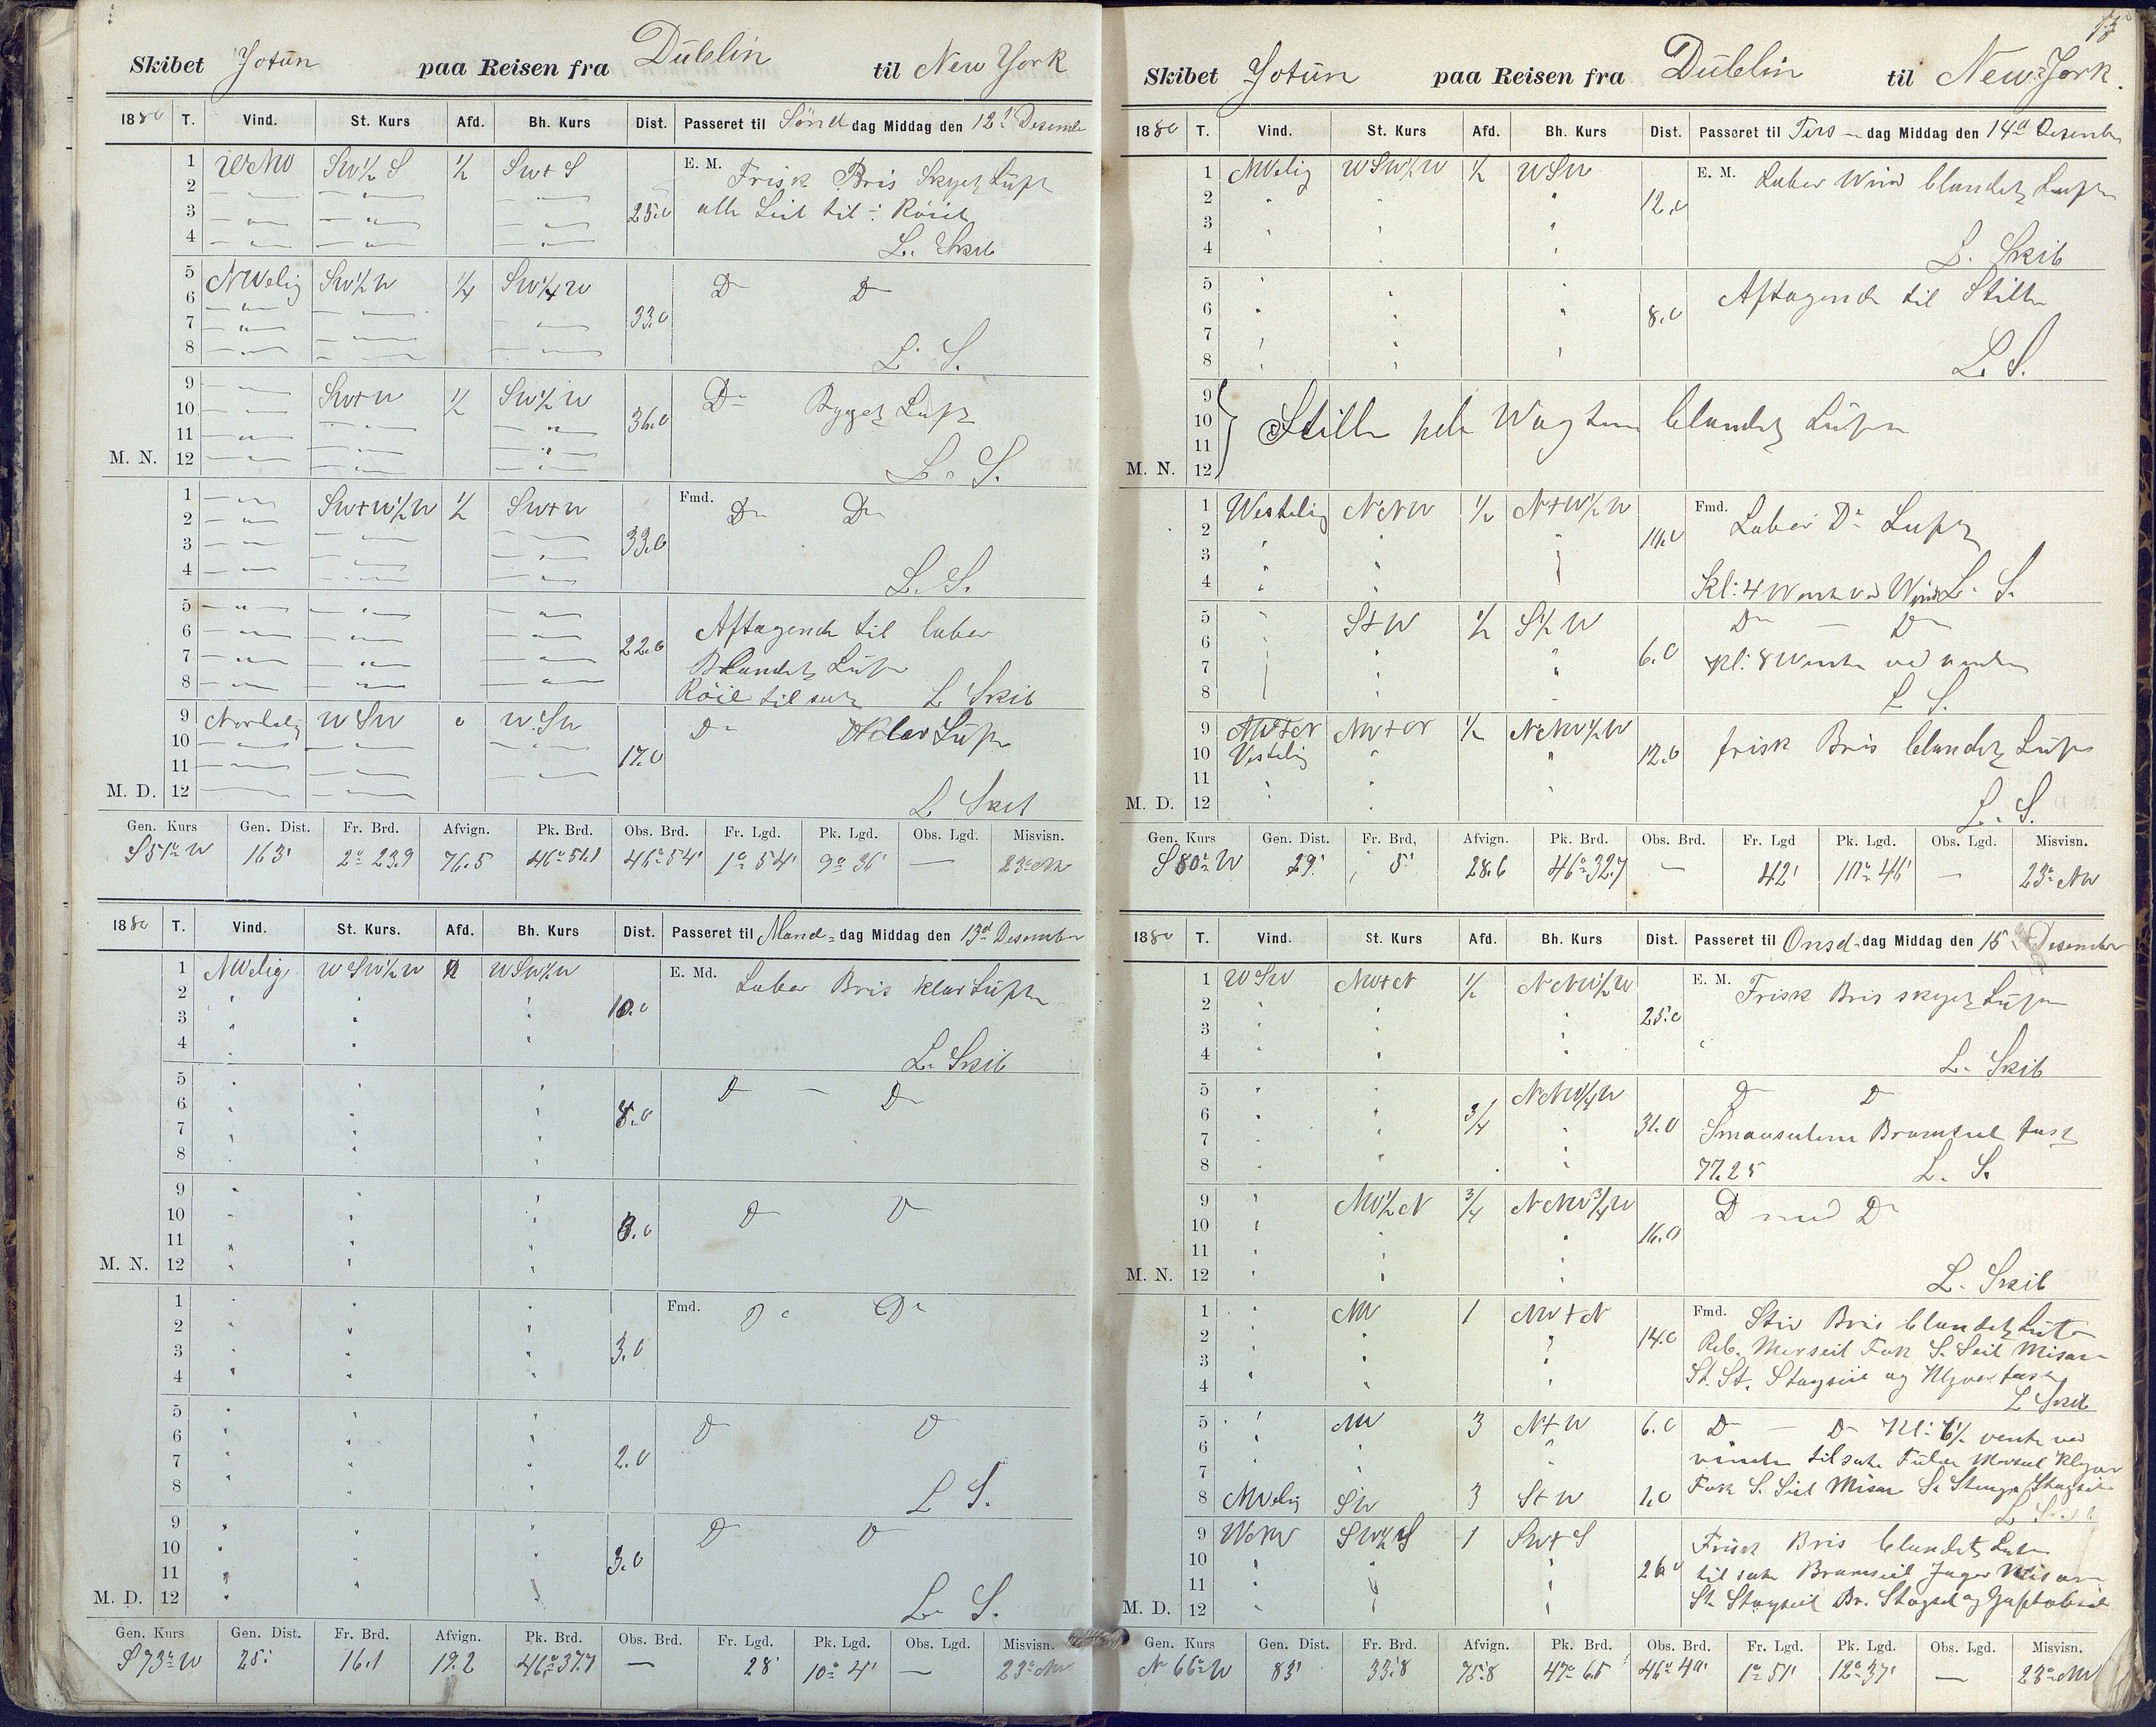 Skibet Jotun paa Reisen fra Dublin til New York
1880 T. Vind. St. Kurs Afd. Bh. Kurs Dist. Passeret til Sønd dag Middag den 12te Desember
1 WNW SW½S ½ SW+S E. M. Frisk Bris Skyet Luft
2
3 25.0 alle Seil til ÷ Röiel
4 L. Skib
5 NWelig SW½W ¼ SW¼W D D
6
7 33.0
8 L. S.
9 SW+W ½ SW½W D Bygget Luft
10 36.0
11
M. N. 12 L. S.
1 SW+W½W ½ SW+W Fmd. D D
2
3 33.0
4 L. S.
5 Aftagende til laber
6 22.0
7 Blandet Luft
8 Röiel til L Skib
9 Nordelig WSW 0 WSW D Klar Luft
10
11 17.0
M. D. 12 L Skib
Gen. Kurs Gen. Dist. Fr. Brd. Afvign. Pk. Brd. Obs. Brd. Fr. Lgd. Pk. Lgd. Obs. Lgd. Misvisn.
S 51° W 163' 2° 23.9 76.5 46° 56.1 46° 54' 1° 54' 9° 36' — 23° NW
1880 T. Vind. St. Kurs. Afd. Bh. Kurs Dist. Passeret til Mand- dag Middag den 13d Desember
1 NWelig WSW½W WSW½W E. Md. Laber Bris klar Luft
2
3 10.0
4 L. Skib
5 D — D
6 8.0
7
8
9
10 8.0 D D
11
M. N. 12
1 Fmd. D D
2
3 3.0
4
5
6 D D
7 2.0
8 L S.
9 D D
10 3.0
11
M. D. 12 L. S.
Gen. Kurs Gen. Dist. Fr. Brd. Afvign. Pk. Brd. Obs. Brd. Fr. Lgd. Pk. Lgd. Obs. Lgd. Misvisn.
S 73° W 25' 16.1 19.2 46° 37.7 — 28 10° 4' — 23° NW
Skibet Jotun paa Reisen fra Dublin til New York.
1880 T. Vind. St. Kurs Afd. Bh. Kurs Dist. Passeret til Tirs — dag Middag den 14d Desember
1 NWelig WSW½W ½ WSW E. M. Laber Wind blandet Luft
2 12.0
3
4 L. Skib
5 Aftagende til Stille
6 8.0
7
8 L. S.
9
10 Stille hele Wagten blandet Luft
11
M. N. 12
1 Westelig NNW ½ N+W½W Fmd. Laber D Luft
2 10.0
3
4 Kl: 4 Wendte ved Winden L. S.
5 S+W ½ S½W D — D
6 6.0
7 Kl: 8 Wendte ved vinden
8 L S.
9 NW+N ½ NNW½W frisk Bris blandet Luft
10 Vestelig 12.0
11
M. D. 12 L. S.
Gen. Kurs Gen. Dist. Fr. Brd, Afvign. Pk. Brd. Obs. Brd. Fr. Lgd Pk. Lgd. Obs. Lgd. Misvisn.
S 80° W 29' 5' 28.6 46° 32.7 — 42' 10° 46' — 23° NW
1880 T. Vind. St. Kurs Afd. Bh. Kurs Dist. Passeret til Onsd- dag Middag den 15 Desember
1 WSW NW+N ½ NNW½W E. M. Frisk Bris skyet Luft
2 25.0
3
4 L. Skib
5 NNW¼W D D
6 ¾ 31.0 Smaaseilene Bramseil fast
7
8 77.25 L. S.
9 NW½N ¾ NNW¾W D med D
10 16.0
11
M. N. 12 L. Skib
1 NW 1 NW+N Fmd. Stiv Bris blandet Luft
2 14.0 Reb. Merseil Fok S. Seil Misan
3 St. St. Stagseil og Klyver fast
4 L Skib
5 NW 3 N+W 6.0 D — D Kl: 6½ vendte ved
6 vinden tilsatte Fulde Merseil Klyver
7 Fok S. Seil Misan St. Stenge Stagseil
8 NWelig SW 3 S+W 1.0 L S
9 WNW SW½S 1 SW+S Frisk Bris blandet Luft
10 26.0 tilsatte Bramseil Jager Misan
11 St. Stagseil Br. Stagseil og Gaftopseil
M. D. 12
Gen. Kurs Gen. Dist. Fr. Brd. Afvign. Pk. Brd. Obs. Brd. Fr. Lgd. Pk. Lgd. Obs. Lgd. Misvisn.
N 66° W 83' 33.8 75.8 47° 6.5 46° 40' 1° 51' 12° 37' — 23° NW